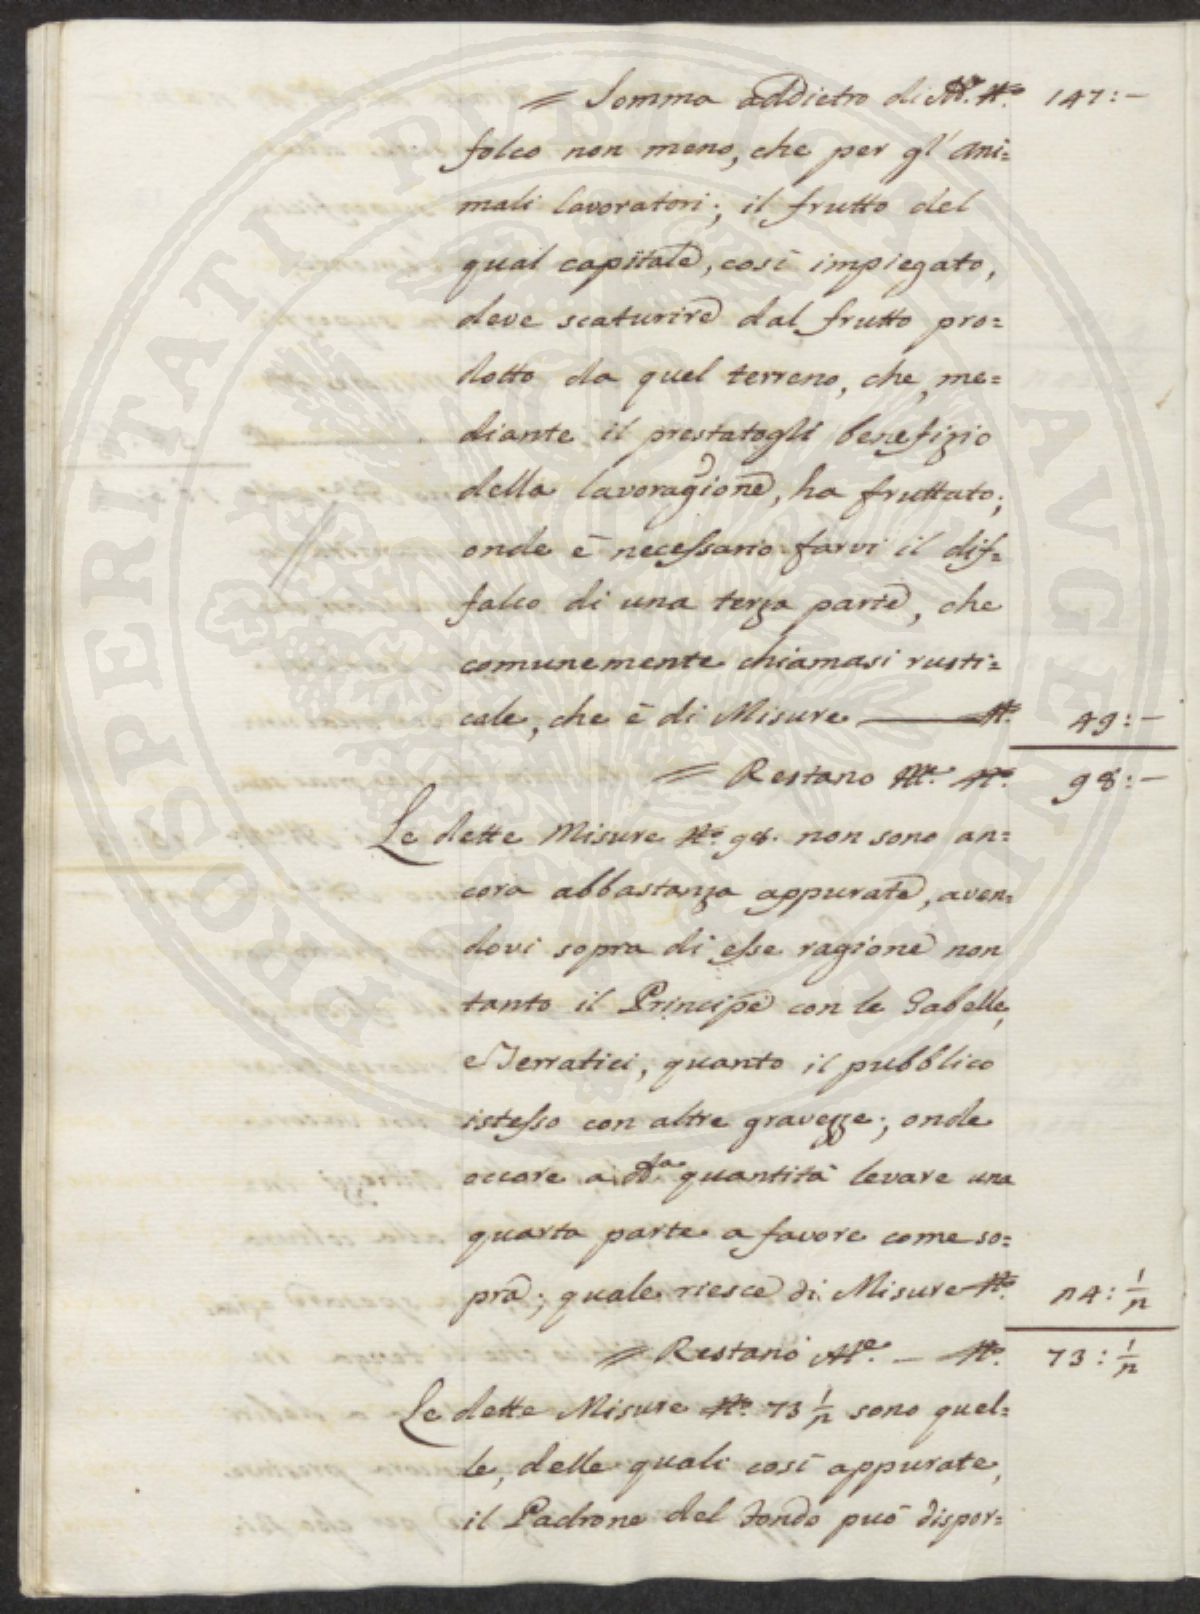 = Somma addietro di M.e N.o 147:-
folco non meno, che per gl' ani=
mali lavoratori; il frutto del
qual capitale, così impiegato,
deve scaturire dal frutto pro=
dotto da quel terreno, che, me=
diante il prestatogli benefizio
della lavoragione, ha fruttato;
onde è necessario farvi il dif=
falco di una terza parte, che
comunemente chiamasi rusti=
cale, che è di Misure N.o 49:-
= Restano M.e N.o 98:-
Le dette Misure N.o 98. non sono an=
cora abbastanza appurate, aven=
dovi sopra di esse ragione non
tanto il Principe con le Gabelle,
e Terratici, quanto il pubblico
istesso con altre gravezze; onde
occore a dd.a quantità levare una
quarta parte a favore come so=
pra; quale riesce di Misure N.o 24: 1/2
= Restano M.e - N.o 73: 1/2
Le dette Misure N.o 73 1/2 sono quel=
le, delle quali così appurate,
il Padrone del fondo può dispor=
PROSPERITATI PUBLICAE AUGENDAE